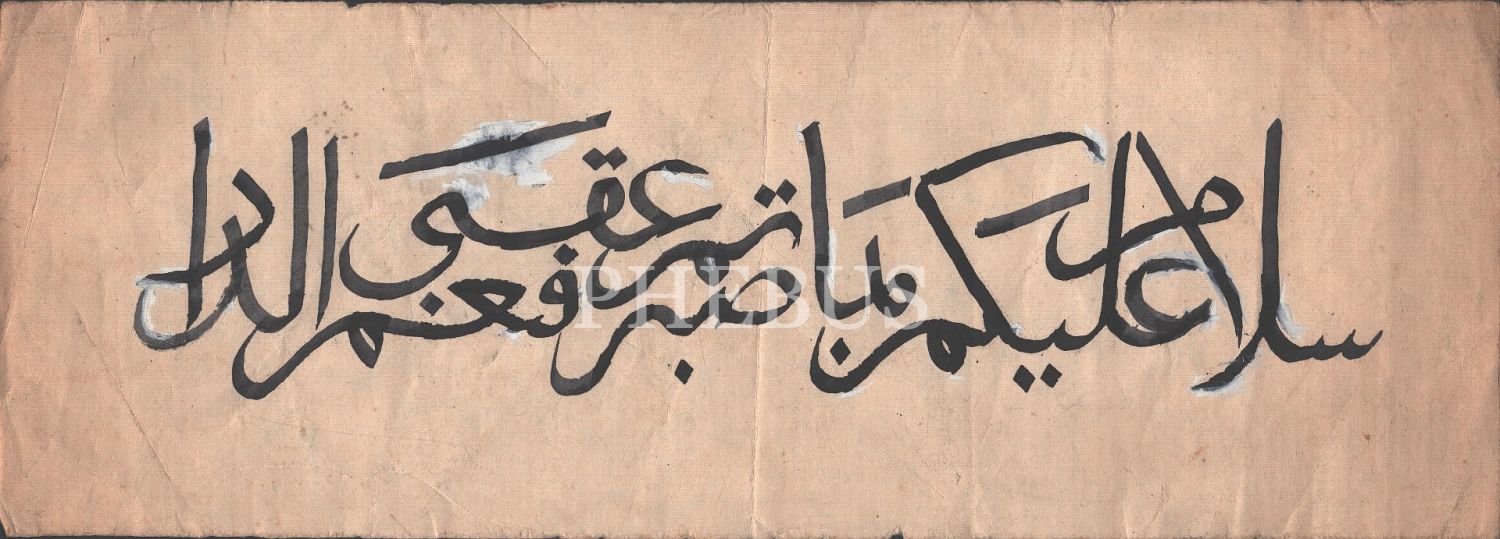 سلام عليكم بما صبرتم فنعم عقبى الدار
PHEBUS